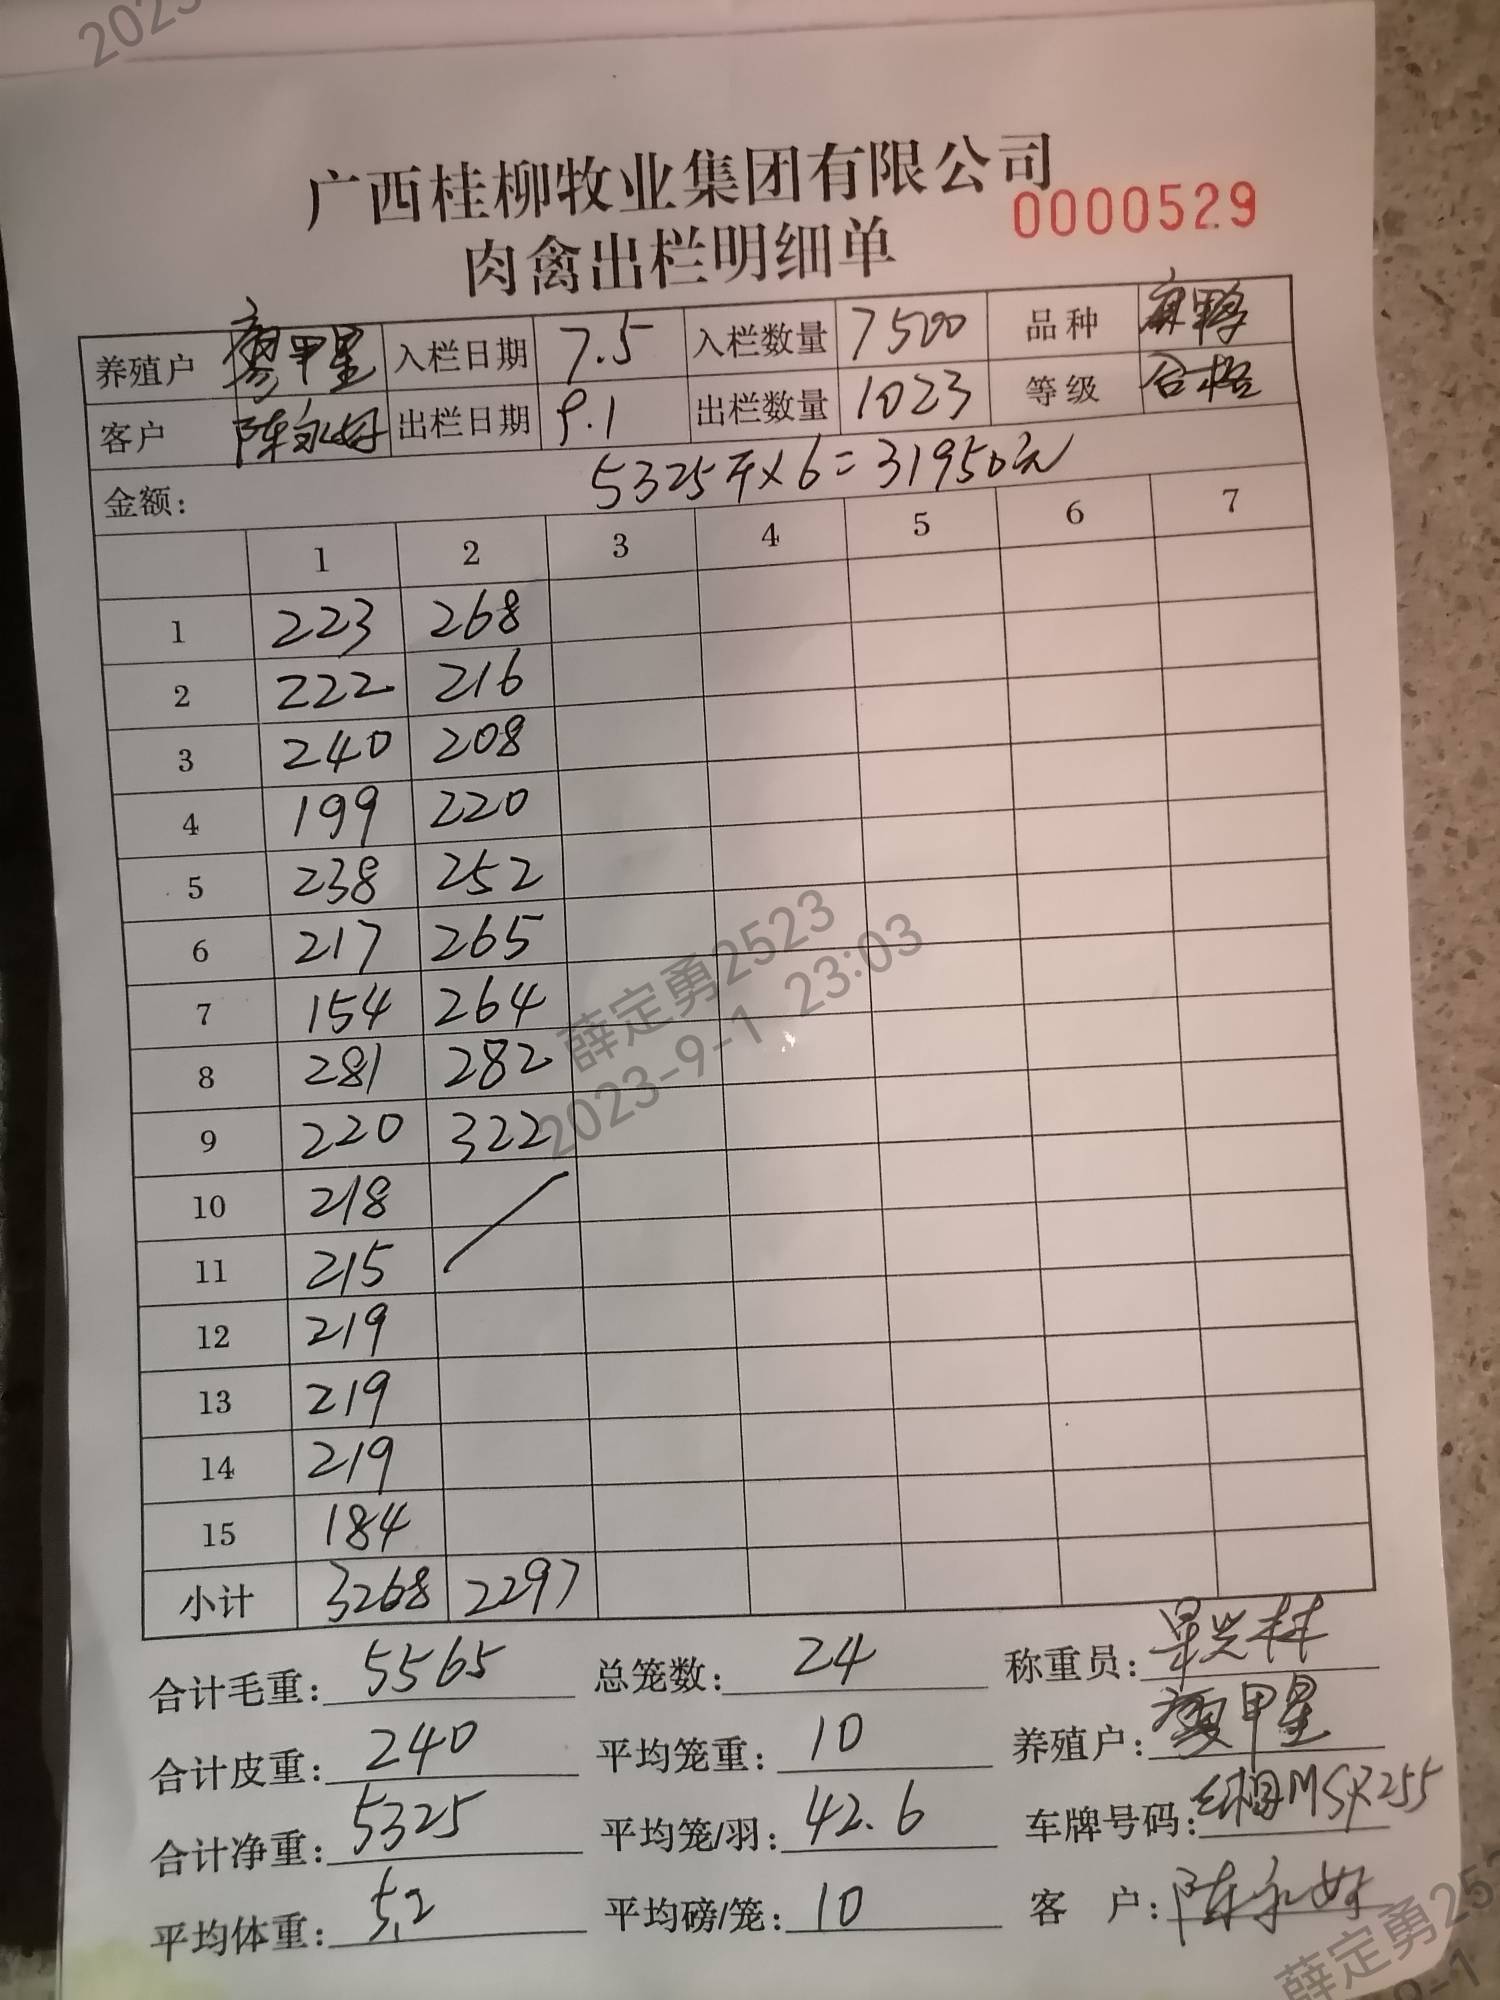 2023
广西桂柳牧业集团有限公司
0000529
肉禽出栏明细单
养殖户 廖甲星 入栏日期 7.5 入栏数量 7500 品种 麻鸭
客户 陈永好 出栏日期 9.1 出栏数量 1023 等级 合格
金额: 5325斤×6=31950元
1 2 3 4 5 6 7
1 223 268
2 222 216
3 240 208
4 199 220
5 238 252
6 217 265
7 154 264
8 281 282
9 220 322
10 218
11 215
12 219
13 219
14 219
15 184
小计 3268 2297
薛定勇2523
2023-9-1 23:03
合计毛重: 5565 总笼数: 24 称重员:
合计皮重: 240 平均笼重: 10 养殖户: 廖甲星
合计净重: 5325 平均笼/羽: 42.6 车牌号码:
平均体重: 5.2 平均磅/笼: 10 客户: 陈永好
薛定勇252
9-1